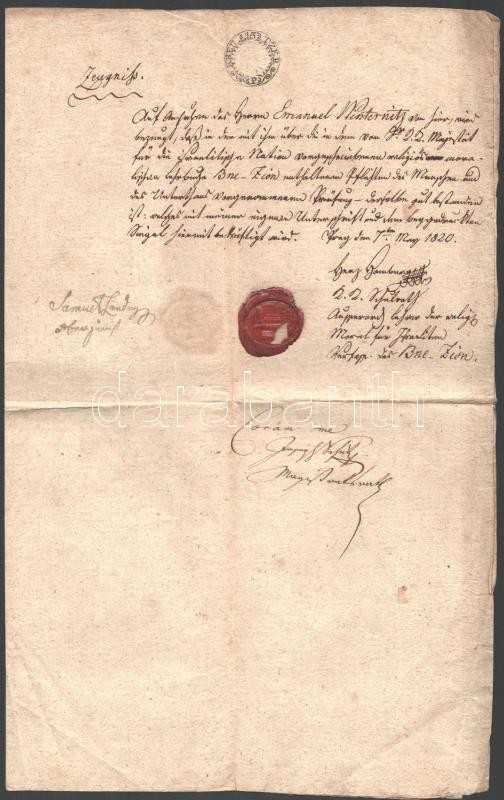 Zeugniß.
Auf Ansuchen des Herrn Emanuel Winternitz von hier, wird
bezeugt, daß in der mit ihm über die in dem von Sr. K. K. Majestät
für die israelitische Nation vorgeschriebenen religiös mora-
lischen Lehrbuche Bne-Zion enthaltenen Pflichten des Menschen und
des Unterthans vorgenommenen Prüfung derselbe gut bestanden
ist; welches mit meiner eigenen Unterschrift und dem beygedruckten
Siegel hiermit bekräftigt wird. Prag den 7ten May 1820.
Herz Homberg
K. K. Schulrath
Ausserord. Lehrer der relig.
Moral für Israeliten
Verfasser des Bne-Zion.
Samuel Landau
Oberjurist
Coram me
Joseph
Magistratsrath
darabanth